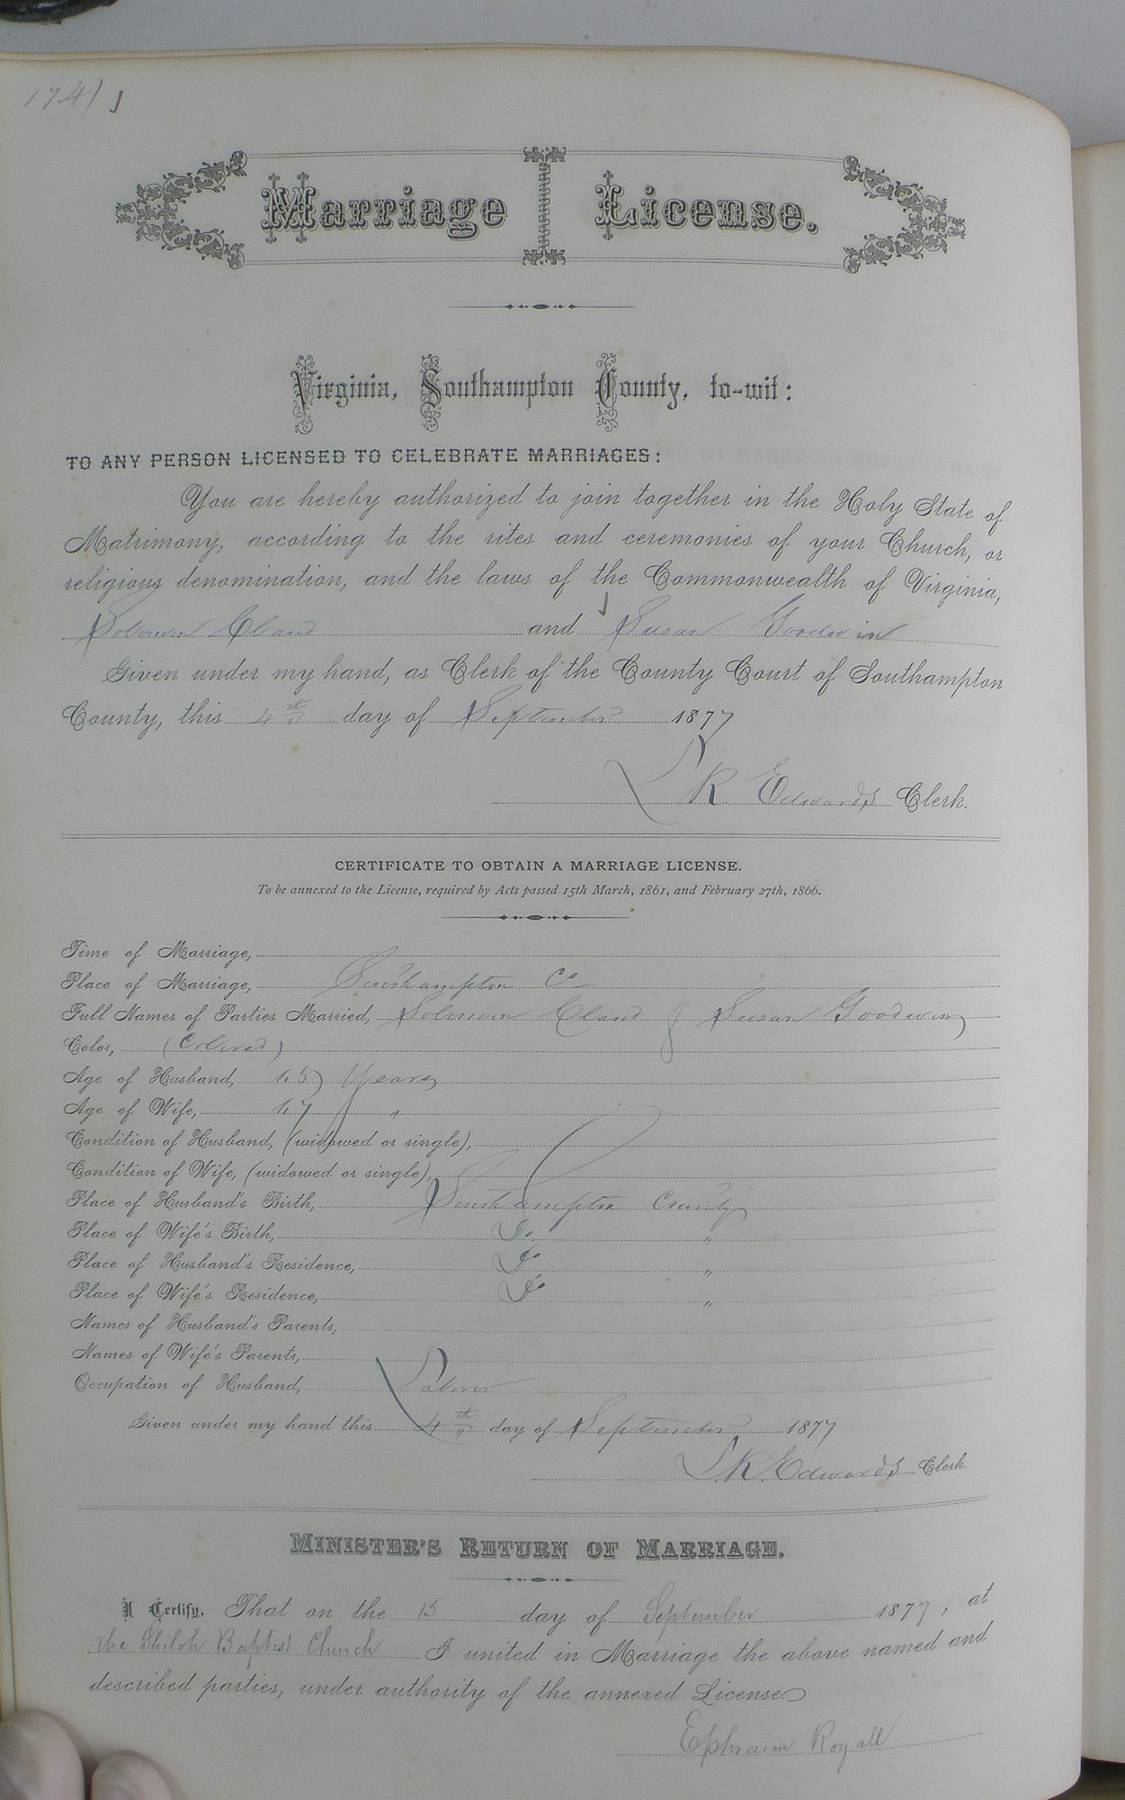 174
Marriage License.
Virginia, Southampton County, to-wit:
TO ANY PERSON LICENSED TO CELEBRATE MARRIAGES:
You are hereby authorized to join together in the Holy State of
Matrimony, according to the rites and ceremonies of your Church, or
religious denomination, and the laws of the Commonwealth of Virginia,
Solomon Claud and Susan Goodwin
Given under my hand, as Clerk of the County Court of Southampton
County, this 4th day of September 1877
L R. Edwards Clerk.
CERTIFICATE TO OBTAIN A MARRIAGE LICENSE.
To be annexed to the License, required by Acts passed 15th March, 1861, and February 27th, 1866.
Time of Marriage,
Place of Marriage, Southampton Co
Full Names of Parties Married, Solomon Claud & Susan Goodwin
Color, (Colored)
Age of Husband, Years
Age of Wife, "
Condition of Husband, (widowed or single),
Condition of Wife, (widowed or single),
Place of Husband's Birth, Southampton County
Place of Wife's Birth, Do "
Place of Husband's Residence, Do "
Place of Wife's Residence, Do "
Names of Husband's Parents,
Names of Wife's Parents,
Occupation of Husband, Laborer
Given under my hand this 4th day of September 1877
L. R. Edwards Clerk.
MINISTER'S RETURN OF MARRIAGE.
I Certify, That on the 15 day of September 1877, at
the Shiloh Baptist Church I united in Marriage the above named and
described parties, under authority of the annexed License.
Ephraim Royall